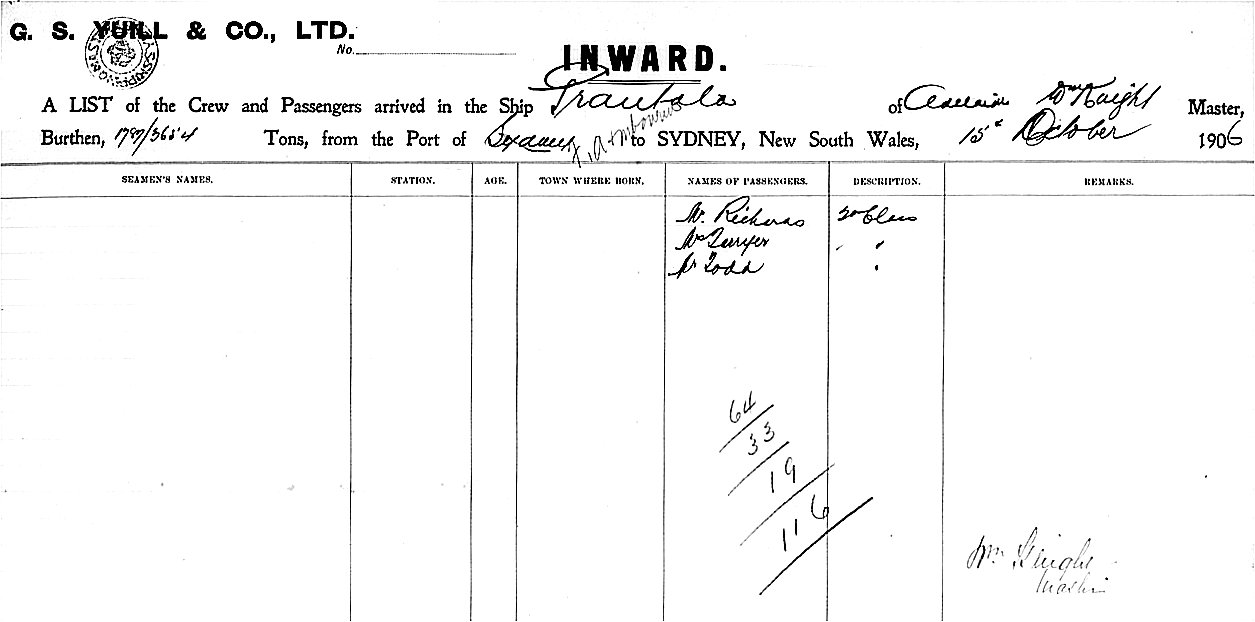 G. S. YUILL & CO., LTD.
No.
INWARD.
A LIST of the Crew and Passengers arrived in the Ship Grantala of Adelaide Wm Knight Master,
Burthen, 1797/3654 Tons, from the Port of to SYDNEY, New South Wales, 15th October 1906
SEAMEN'S NAMES. STATION. AGE. TOWN WHERE BORN. NAMES OF PASSENGERS. DESCRIPTION. REMARKS.
Mr. Richards
Mr Todd
64
33
19
116
Wm Knight
Master